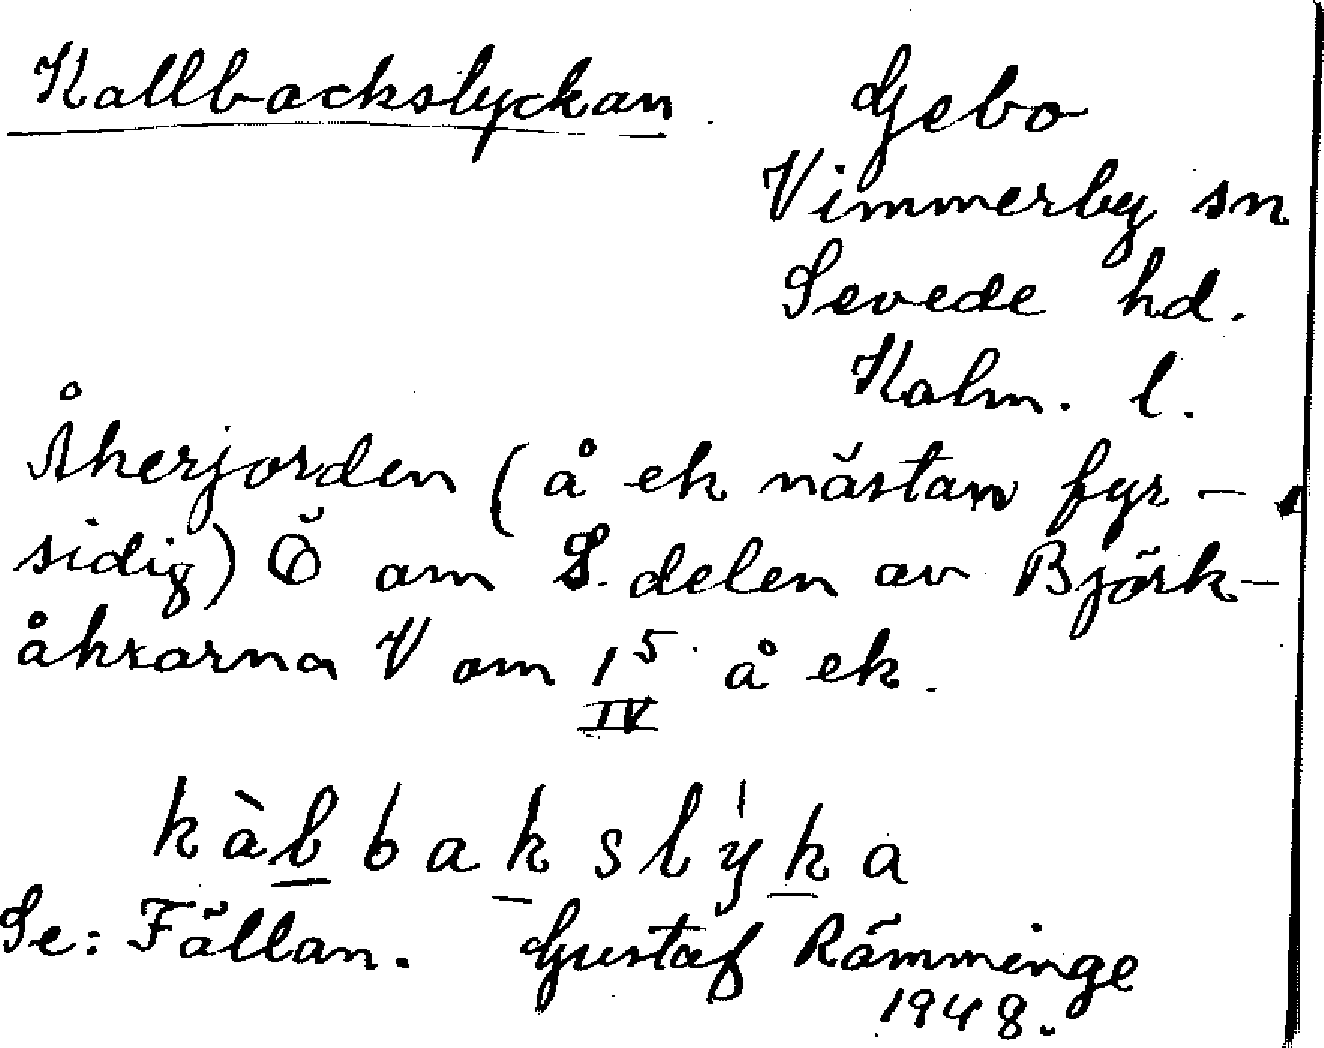 Kallbackslyckan Gebo
Vimmerby sn
Sevede hd.
Kalm. l.
Åkerjorden (å ek nästan fyr-
sidig) Ö om S. delen av Björk-
åkrarna V om 1⁵ å ek.
IV
kàlbakslýka
Se: Fällan. Gustaf Rämminge
1948.